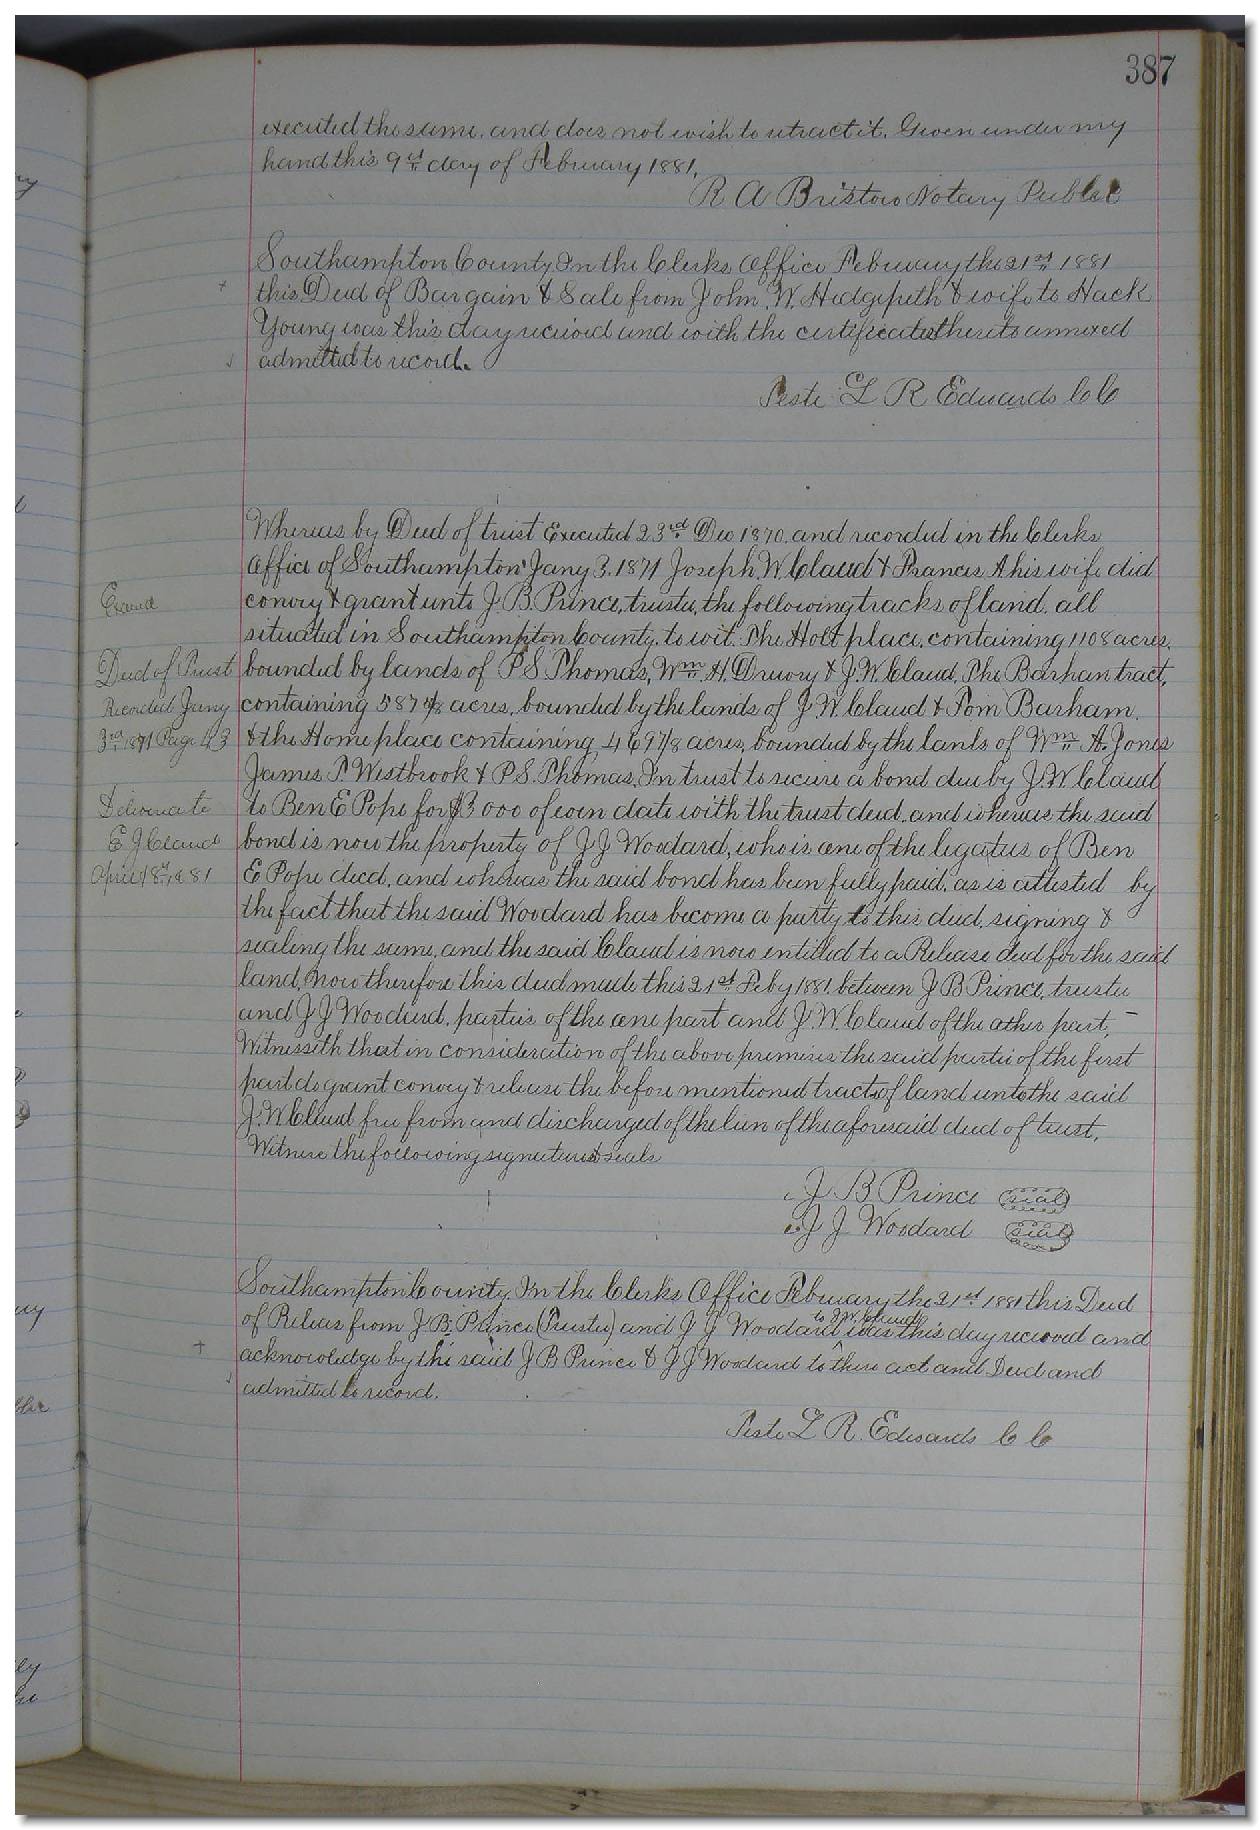 387
executed the same, and does not wish to retract it. Given under my
hand this 9th day of February 1881,
R A Bristow Notary Public
Southampton County In the Clerks Office February the 21st 1881
this Deed of Bargain & Sale from John W. Hedgepeth & wife to Hack
Young was this day recieved and with the certificates thereto annexed
admitted to record.
Teste L R Edwards CC
Whereas by Deed of trust Executed 23rd Dec 1870, and recorded in the Clerks
Office of Southampton Jany 3. 1871 Joseph. W. Claud & Francis A his wife did
convey & grant unto J. B. Prince, trustee, the following tracks of land, all
situated in Southampton County, to wit. The Holt place, containing 1108 acres,
bounded by lands of P. S. Thomas, Wm. H. Drewry & J. W. Claud, The Barhan tract,
containing 587 acres, bounded by the lands of J. W. Claud & Tom Barham.
& the Home place containing 469 7/8 acres, bounded by the lands of Wm. A. Jones
James. T. Westbrook & P. S. Thomas, In trust to secure a bond due by J. W. Claud
to Ben E Pope for $3000 of even date with the trust deed, and whereas the said
bond is now the property of J J Woodard, who is one of the legatees of Ben
E Pope decd, and whereas the said bond has been fully paid, as is attested by
the fact that the said Woodard has become a party to this deed, signing &
sealing the same, and the said Claud is now entitled to a Release deed for the said
land, Now therefore this deed made this 21st Feby 1881, between J B Prince, trustee
and J J Woodard, parties of the one part and J. W. Claud of the other part, –
Witnesseth that in consideration of the above premises the said partie of the first
part do grant convey & release the before mentioned tracts of land unto the said
J. W. Claud free from and discharged of the lien of the aforesaid deed of trust,
Witness the following signatures & seals
J B Prince seal
J J Woodard seal
Southampton County In the Clerks Office February the 21st 1881 this Deed
of Releas from J. B. Prince (Trustee) and J J Woodard to J. W. Claud was this day recieved and
acknowledge by the said J B Prince & J J Woodard to there act and Deed and
admitted to record.
Teste L R. Edwards C C
Examd
Deed of Trust
Recorded Jany
3rd 1871 Page 43
Deliverd to
E J Claud
April 18th 1881